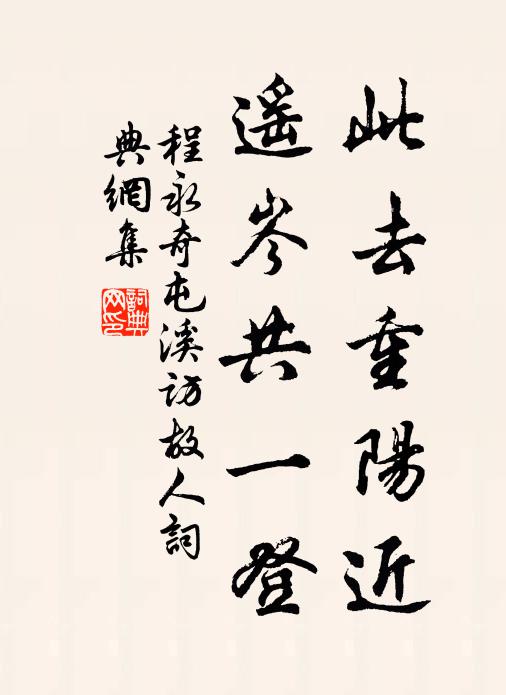 此去重陽近
遥岑共一登
程永奇屯溪訪故人詞
典網集
詞典
网印